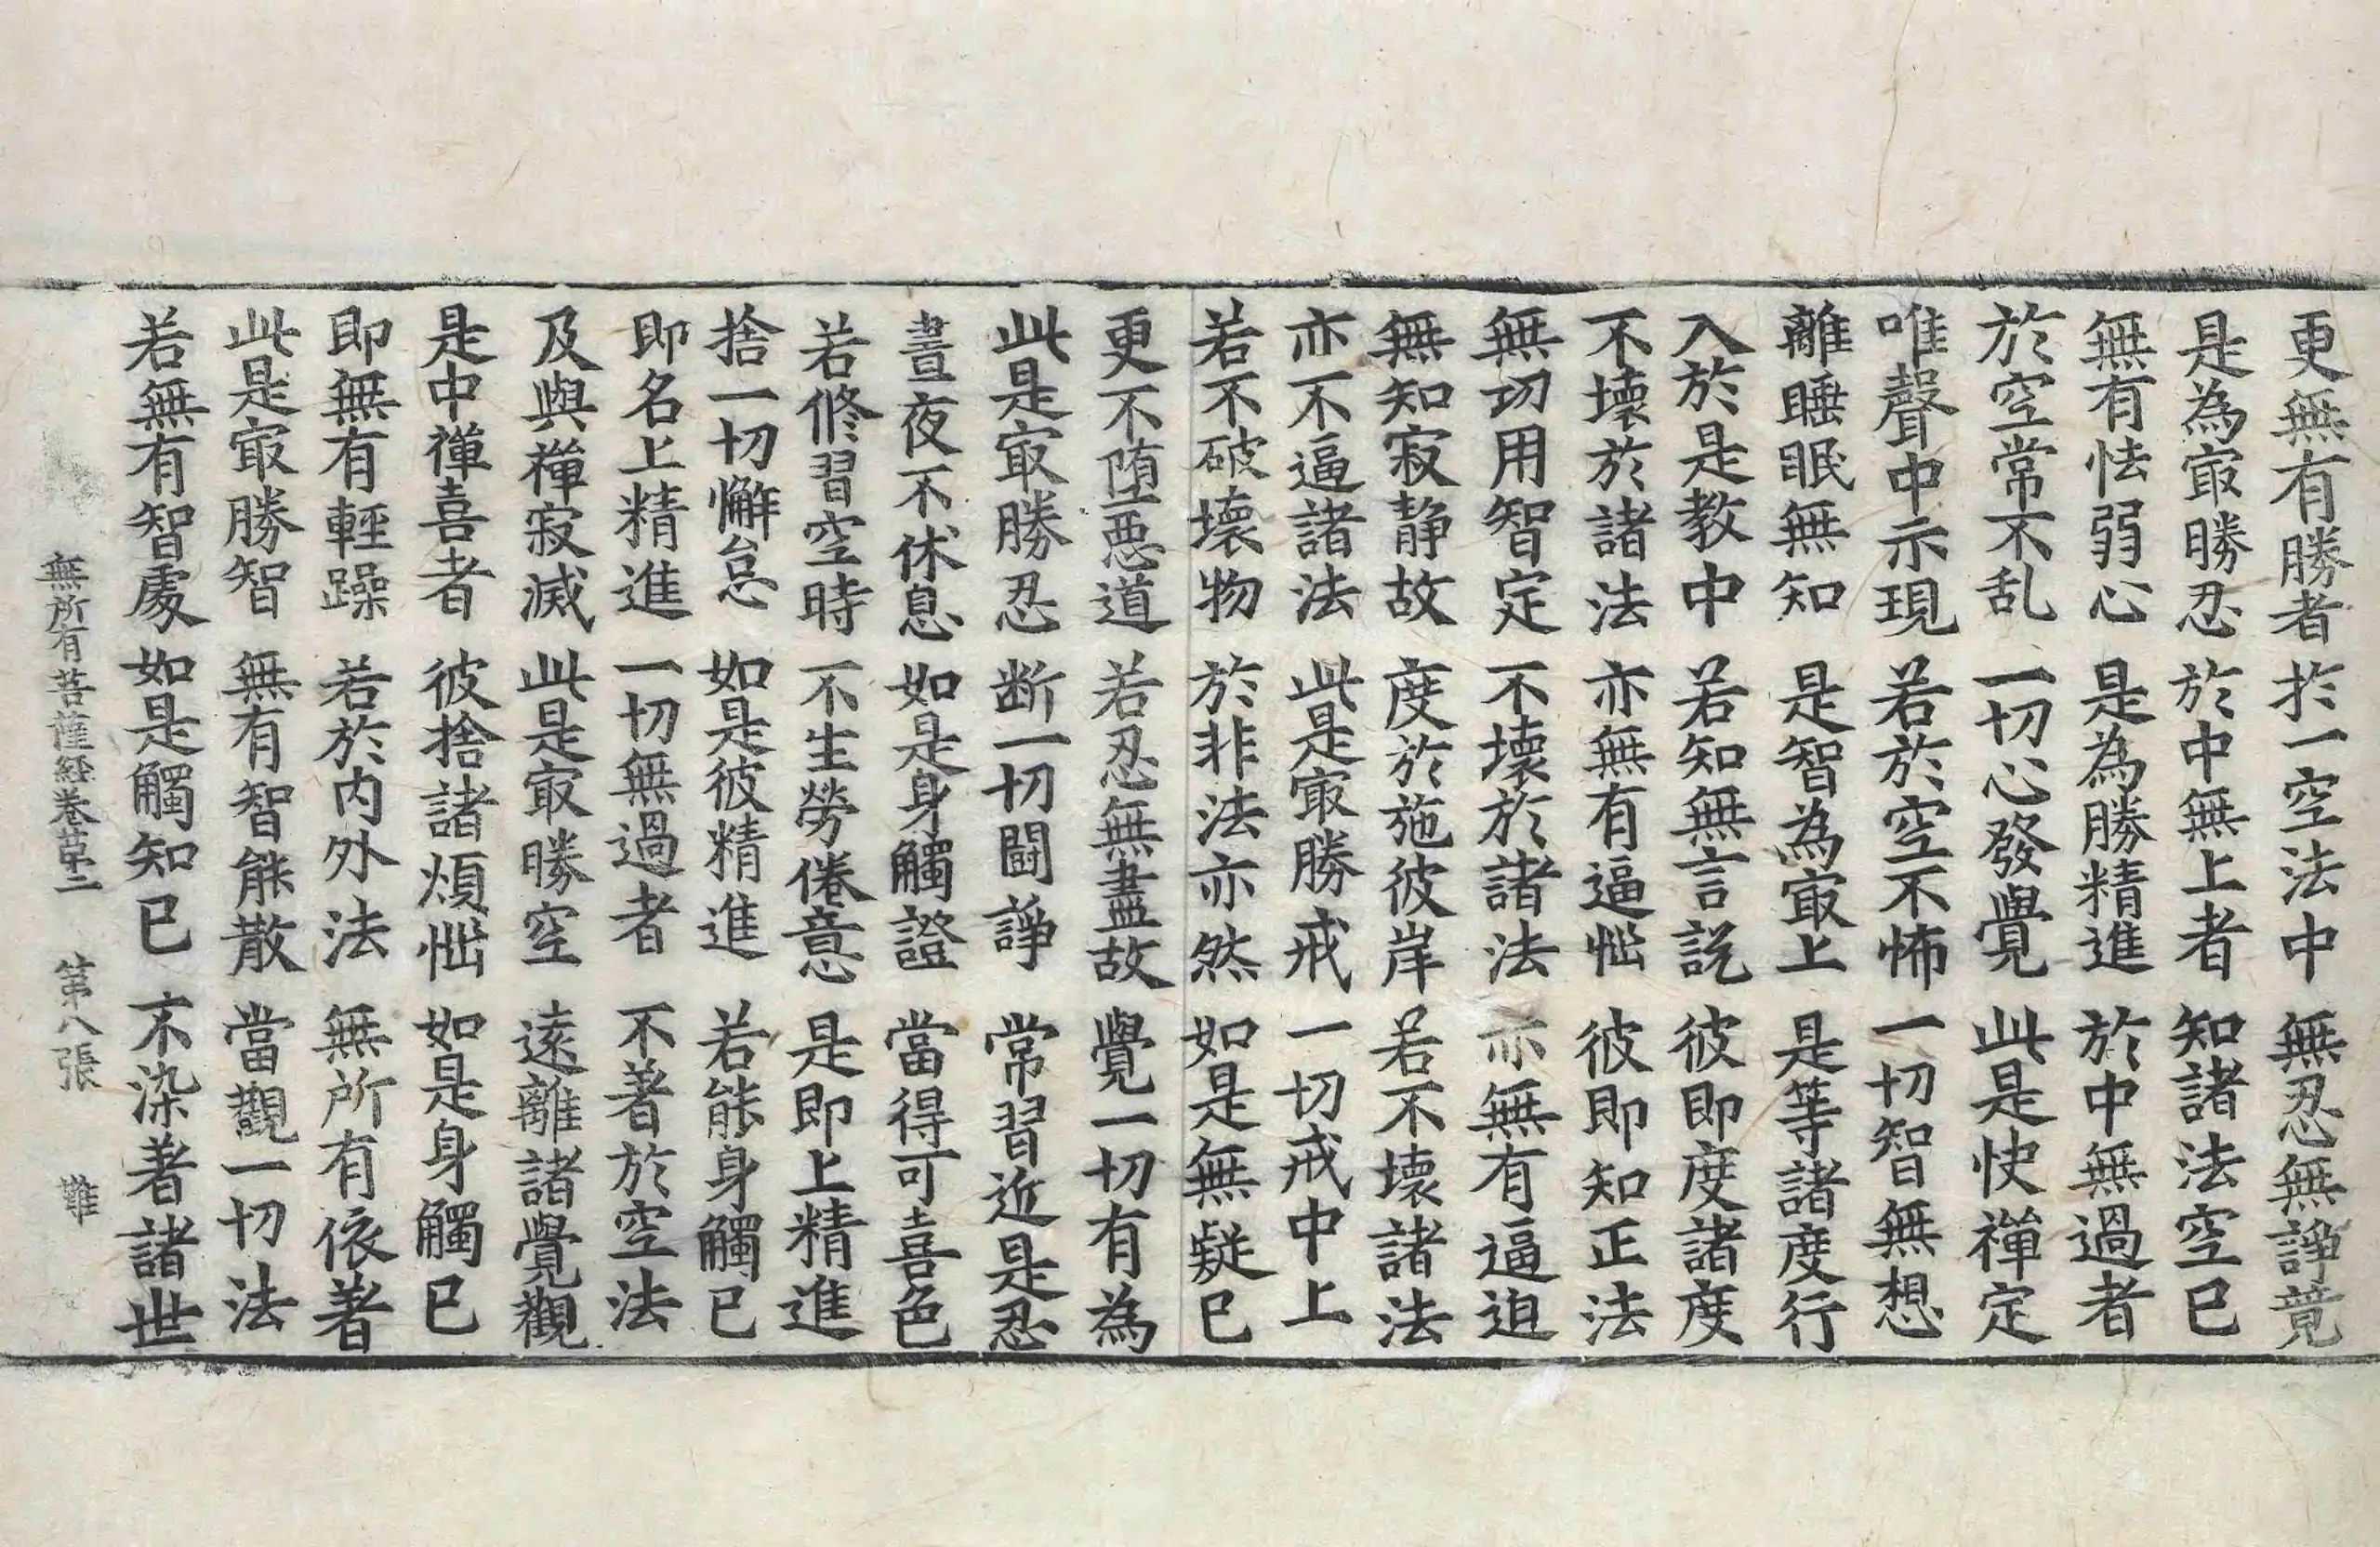 更無有勝者 扵一空法中 無忍無諍竟
是為㝡勝忍 於中無上者 知諸法空已
無有怯弱心 是為勝精進 於中無過者
於空常不乱 一切心發覺 此是快禪定
唯聲中示現 若於空不怖 一切智無想
離睡眠無知 是智為㝡上 是等諸度行
入於是教中 若知無言說 彼即度諸度
不壞於諸法 亦無有逼惱 彼即知正法
無切用智定 不壞於諸法 亦無有逼迫
無知寂静故 度於施彼岸 若不壞諸法
亦不逼諸法 此是㝡勝戒 一切戒中上
若不破壞物 於非法亦然 如是無疑已
更不堕惡道 若忍無盡故 覺一切有為
此是㝡勝忍 断一切鬪諍 常習近是忍
晝夜不休息 如是身觸證 當得可喜色
若修習空時 不生勞倦意 是即上精進
捨一切懈怠 如是彼精進 若能身觸已
即名上精進 一切無過者 不著於空法
及與禪寂滅 此是㝡勝空 遠離諸覺觀
是中禪喜者 彼捨諸煩惱 如是身觸已
即無有輕躁 若於内外法 無所有依著
此是㝡勝智 無有智能散 當觀一切法
若無有智處 如是觸知已 不染著諸世
無所有菩薩経卷苐二 苐八張 難